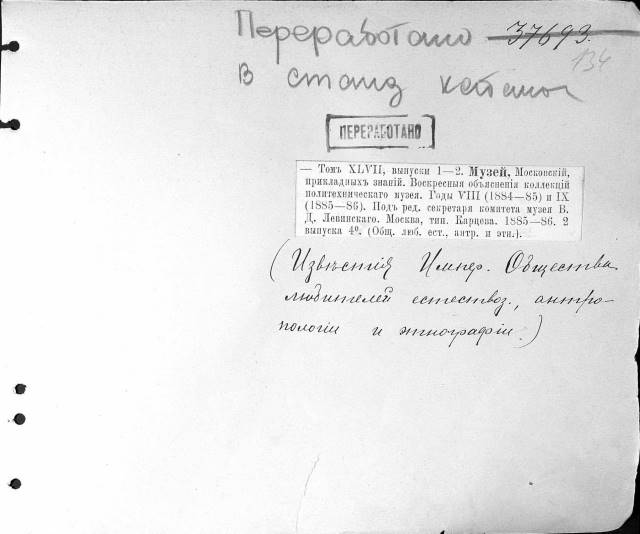 Переработано 37693.
134
в станд каталог
ПЕРЕРАБОТАНО
— Томъ XLVII, выпуски 1—2. Музей, Московскій,
прикладныхъ знаній. Воскресныя объясненія коллекцій
политехническаго музея. Годы VIII (1884—85) и IX
(1885—86). Подъ ред. секретаря комитета музея В.
Д. Левинскаго. Москва, тип. Карцева. 1885—86. 2
выпуска 4⁰. (Общ. люб. ест., антр. и этн.).
(Извѣстія Импер. Общества
любителей естествоз., антро-
пологіи и этнографіи.)